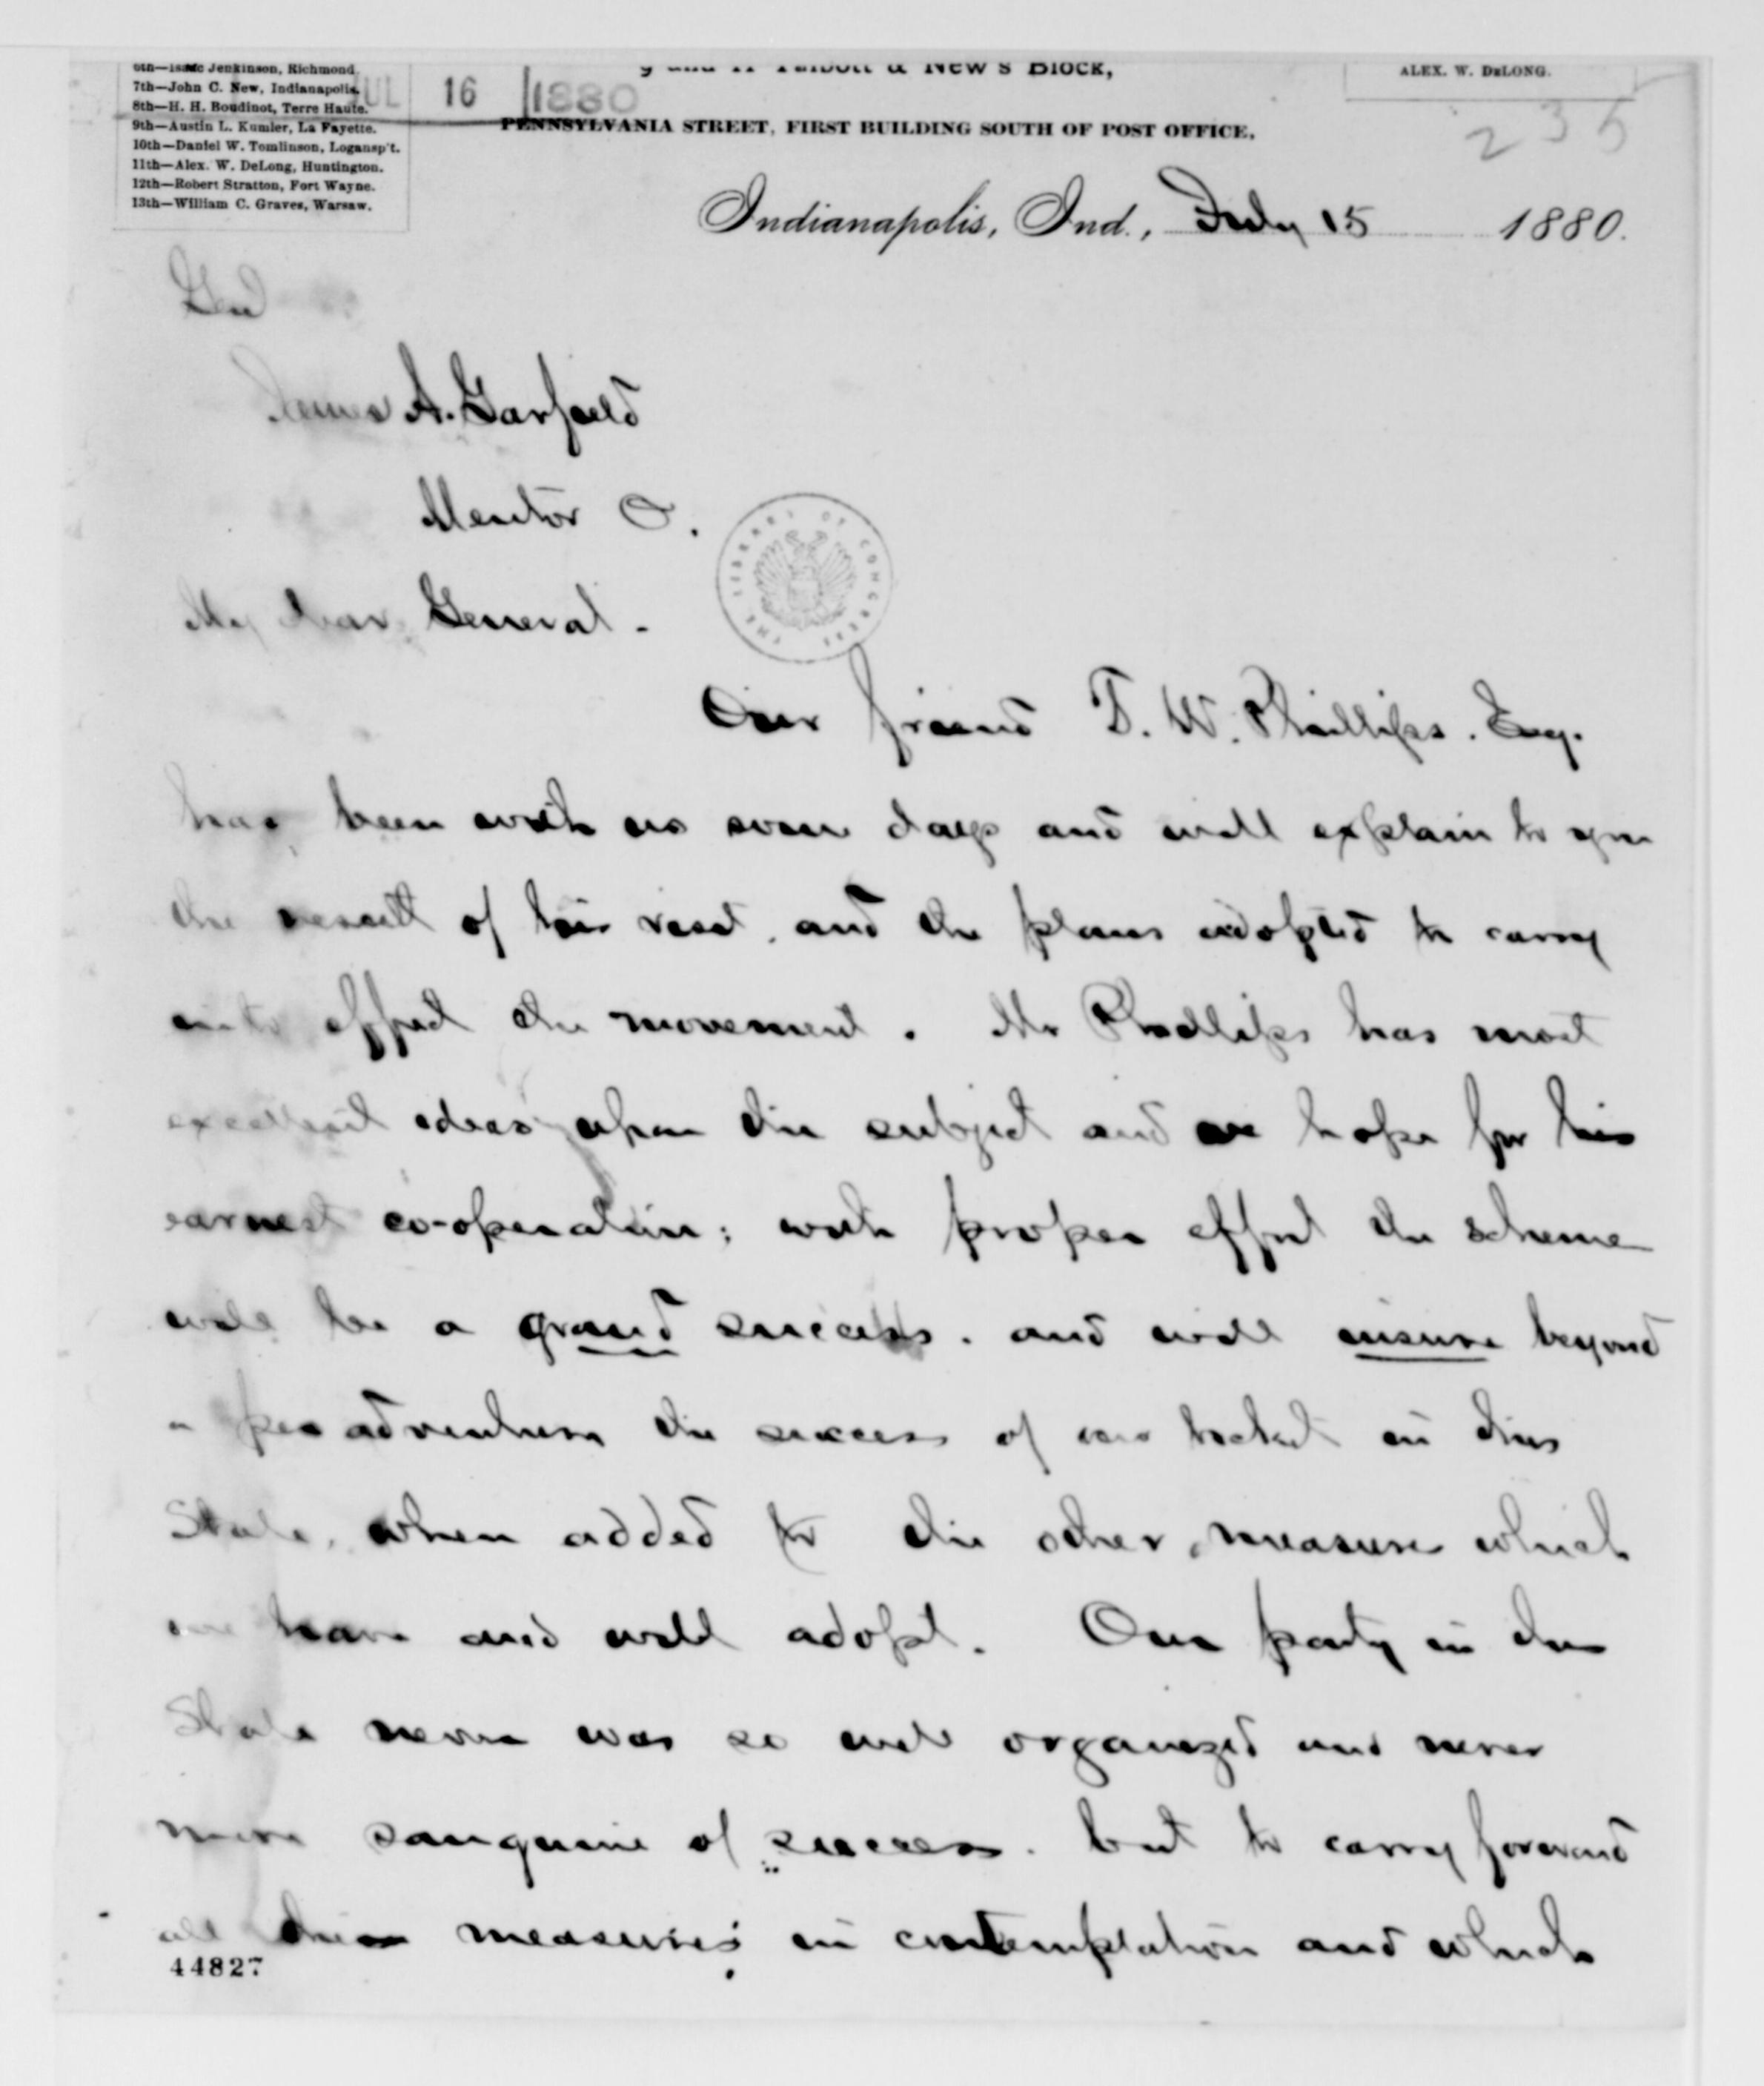 6th—Isaac Jenkinson, Richmond.
7th—John C. New, Indianapolis.
8th—H. H. Boudinot, Terre Haute.
9th—Austin L. Kumler, La Fayette.
10th—Daniel W. Tomlinson, Logansp't.
11th—Alex. W. DeLong, Huntington.
12th—Robert Stratton, Fort Wayne.
13th—William C. Graves, Warsaw.
UL 16 1880
9 and 11 Talbott & New's Block,
PENNSYLVANIA STREET, FIRST BUILDING SOUTH OF POST OFFICE,
ALEX. W. DeLONG.
235
Indianapolis, Ind., July 15 1880.
Gen
James A. Garfield
Mentor O.
THE LIBRARY OF CONGRESS
My dear General.
Our friend T. W. Phillips. Esq.
has been with us some days and will explain to you
the result of his visit, and the plans adopted to carry
into effect the movement. Mr Phillips has most
excellent ideas upon the subject and we hope for his
earnest co-operation; with proper effort the scheme
will be a grand success. and will insure beyond
a peradventure the success of our ticket in this
State, when added to the other measures which
we have and will adopt. Our party in this
State never was so well organized and never
more sanguine of success. but to carry forward
all these measures in contemplation and which
44827